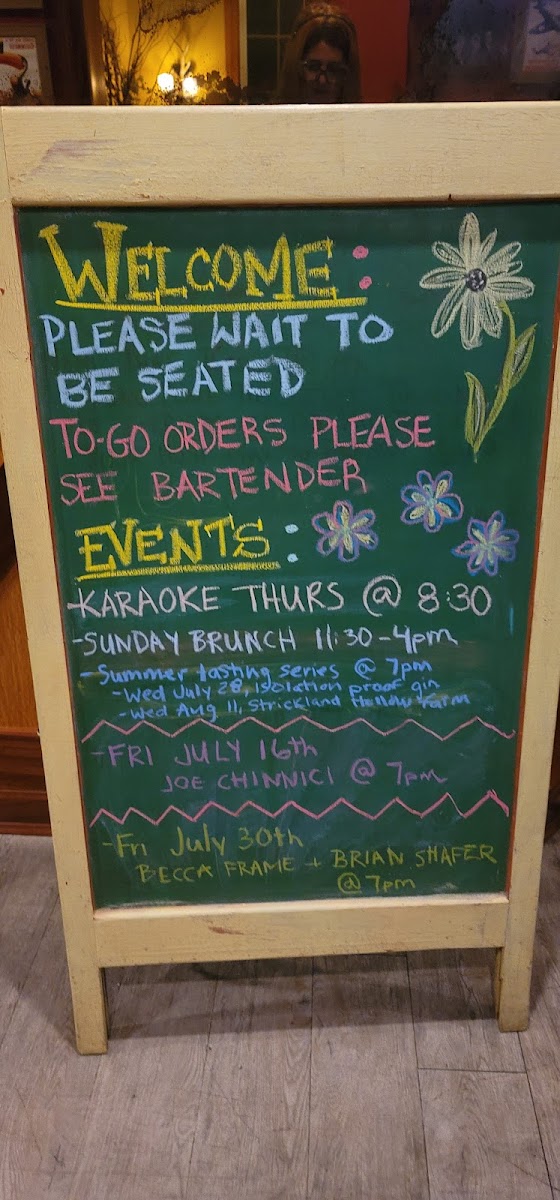 WELCOME:
PLEASE WAIT TO
BE SEATED
TO-GO ORDERS PLEASE
SEE BARTENDER
EVENTS:
-KARAOKE THURS @ 8:30
-SUNDAY BRUNCH 11:30-4pm
-Summer tasting series @ 7pm
-Wed July 28, Isolation proof gin
-Wed Aug 11, Strickland Hollow Farm
-FRI JULY 16th
JOE CHINNICI @ 7pm
-Fri July 30th
BECCA FRAME + BRIAN SHAFER
@ 7pm